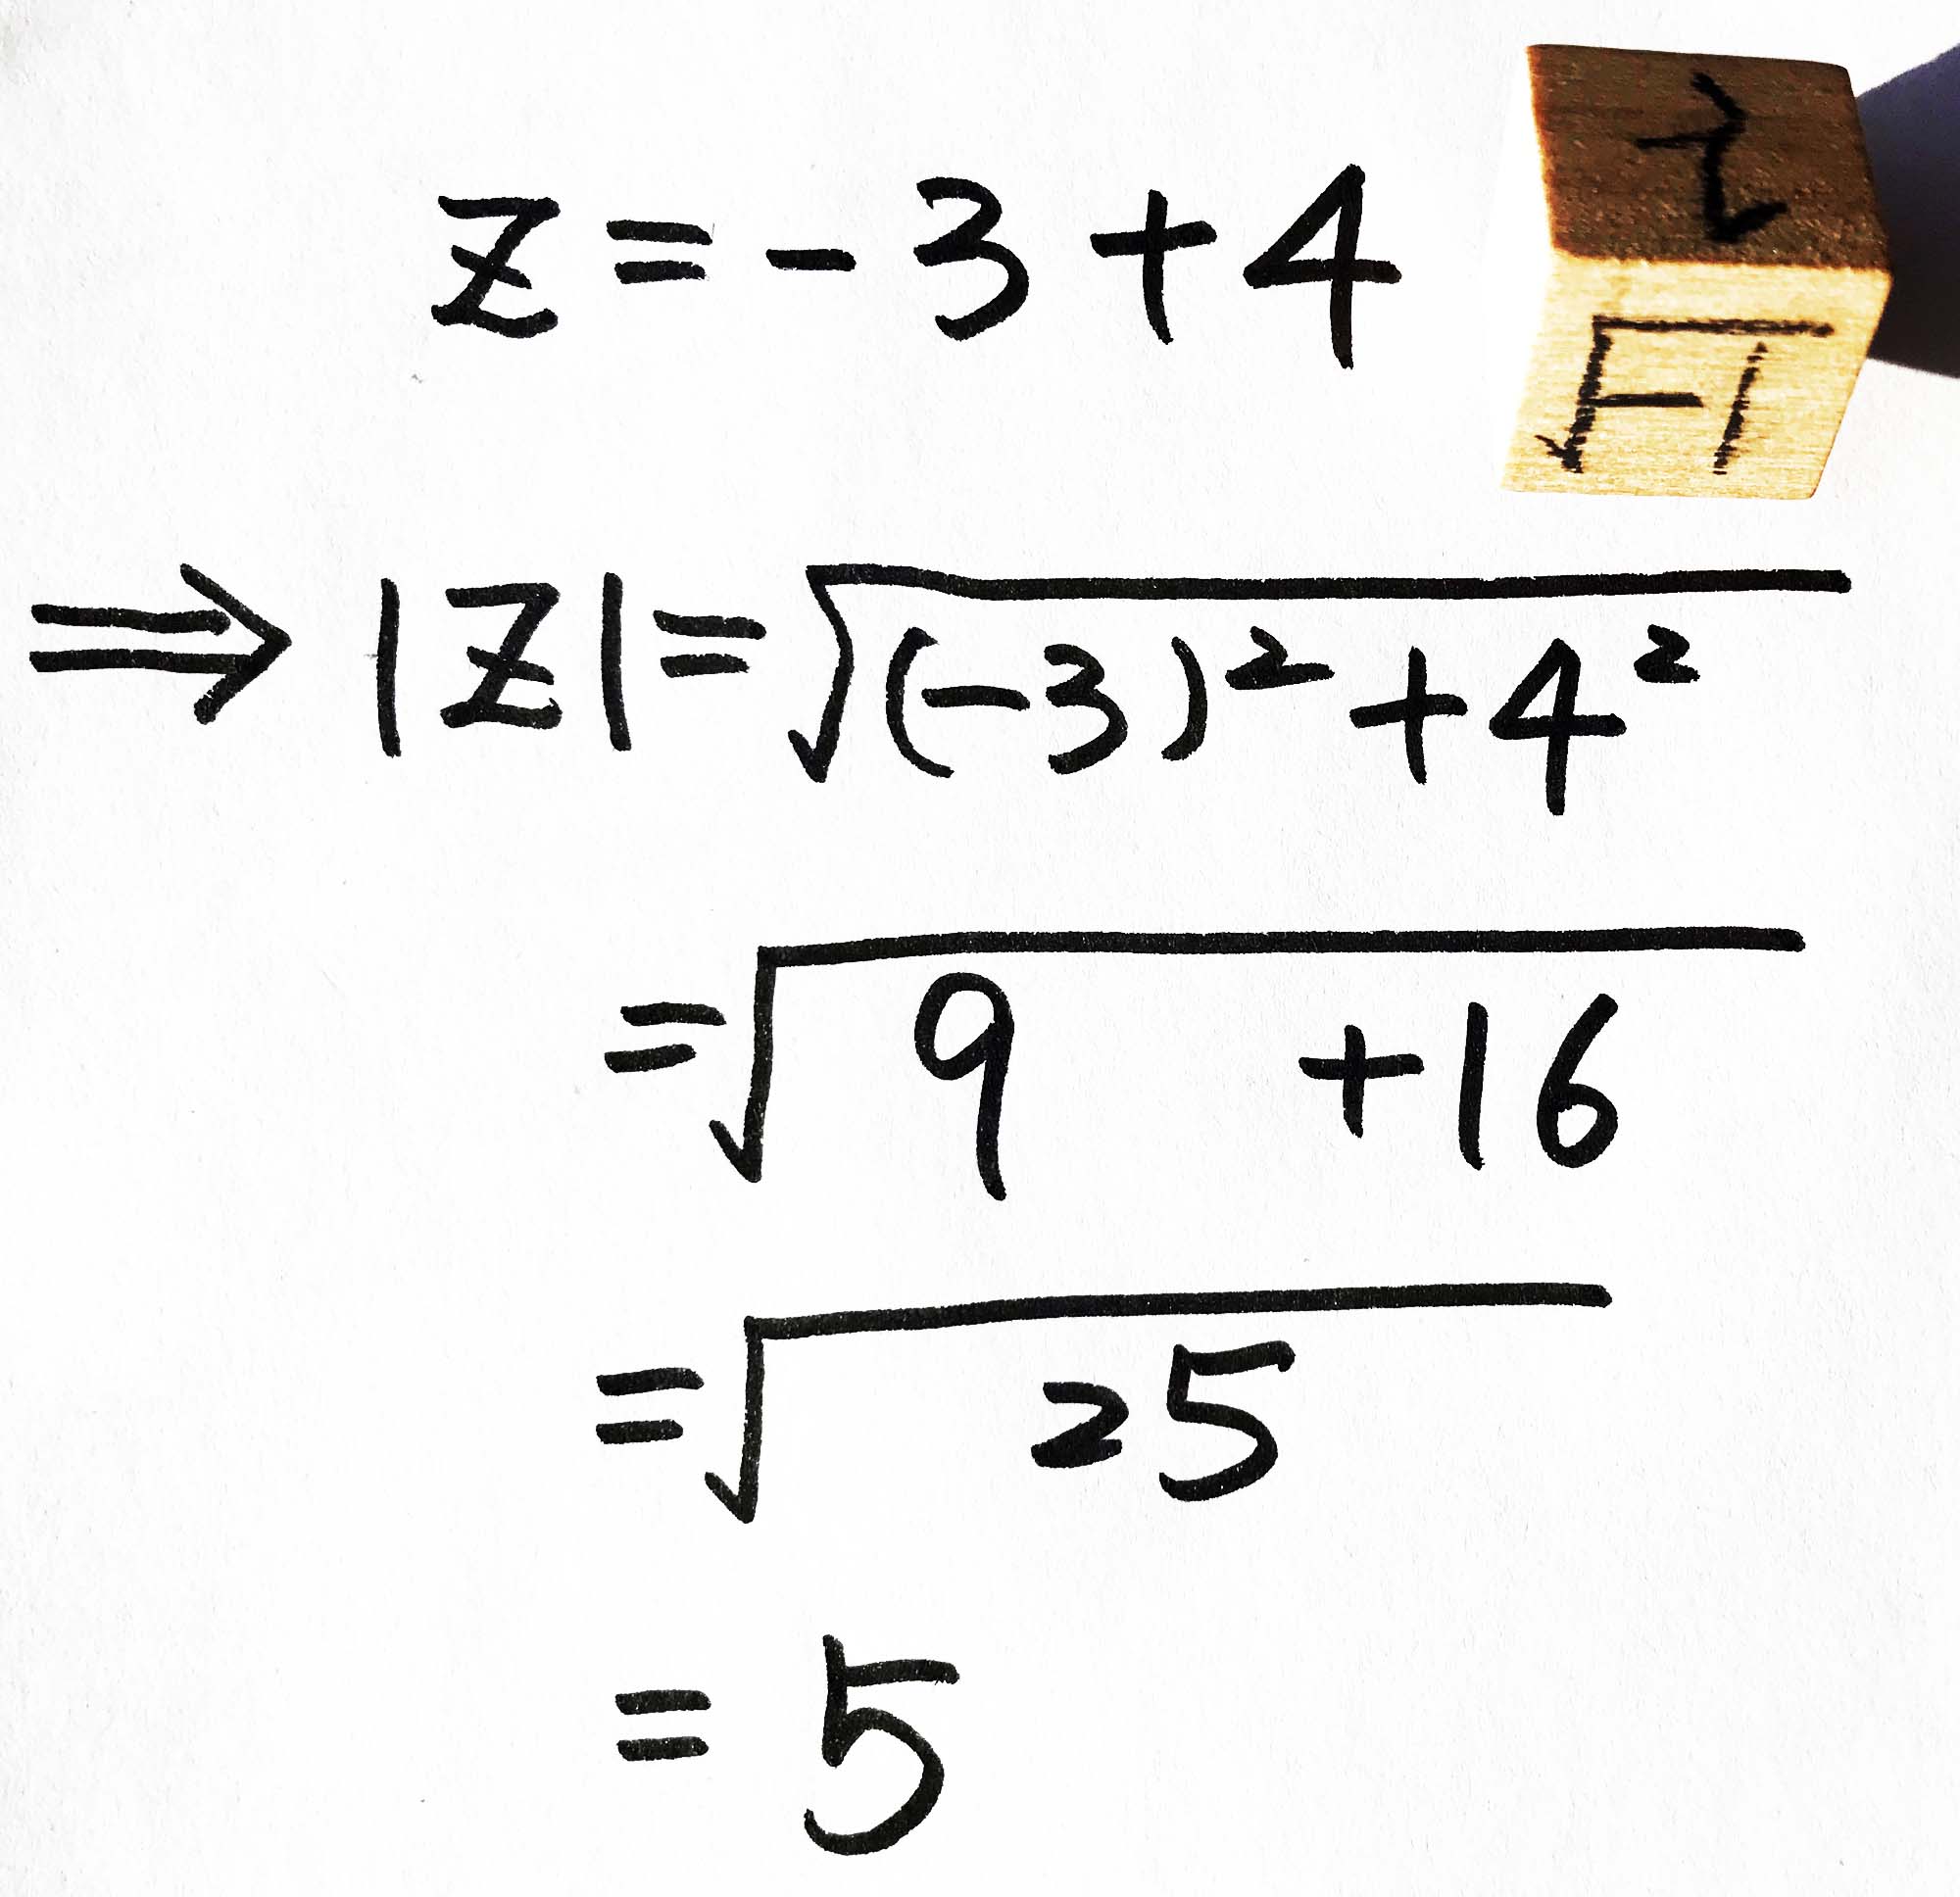 z = -3 + 4 i
√-1
⇒ |z| = √((-3)² + 4²)
= √(9 + 16)
= √25
= 5